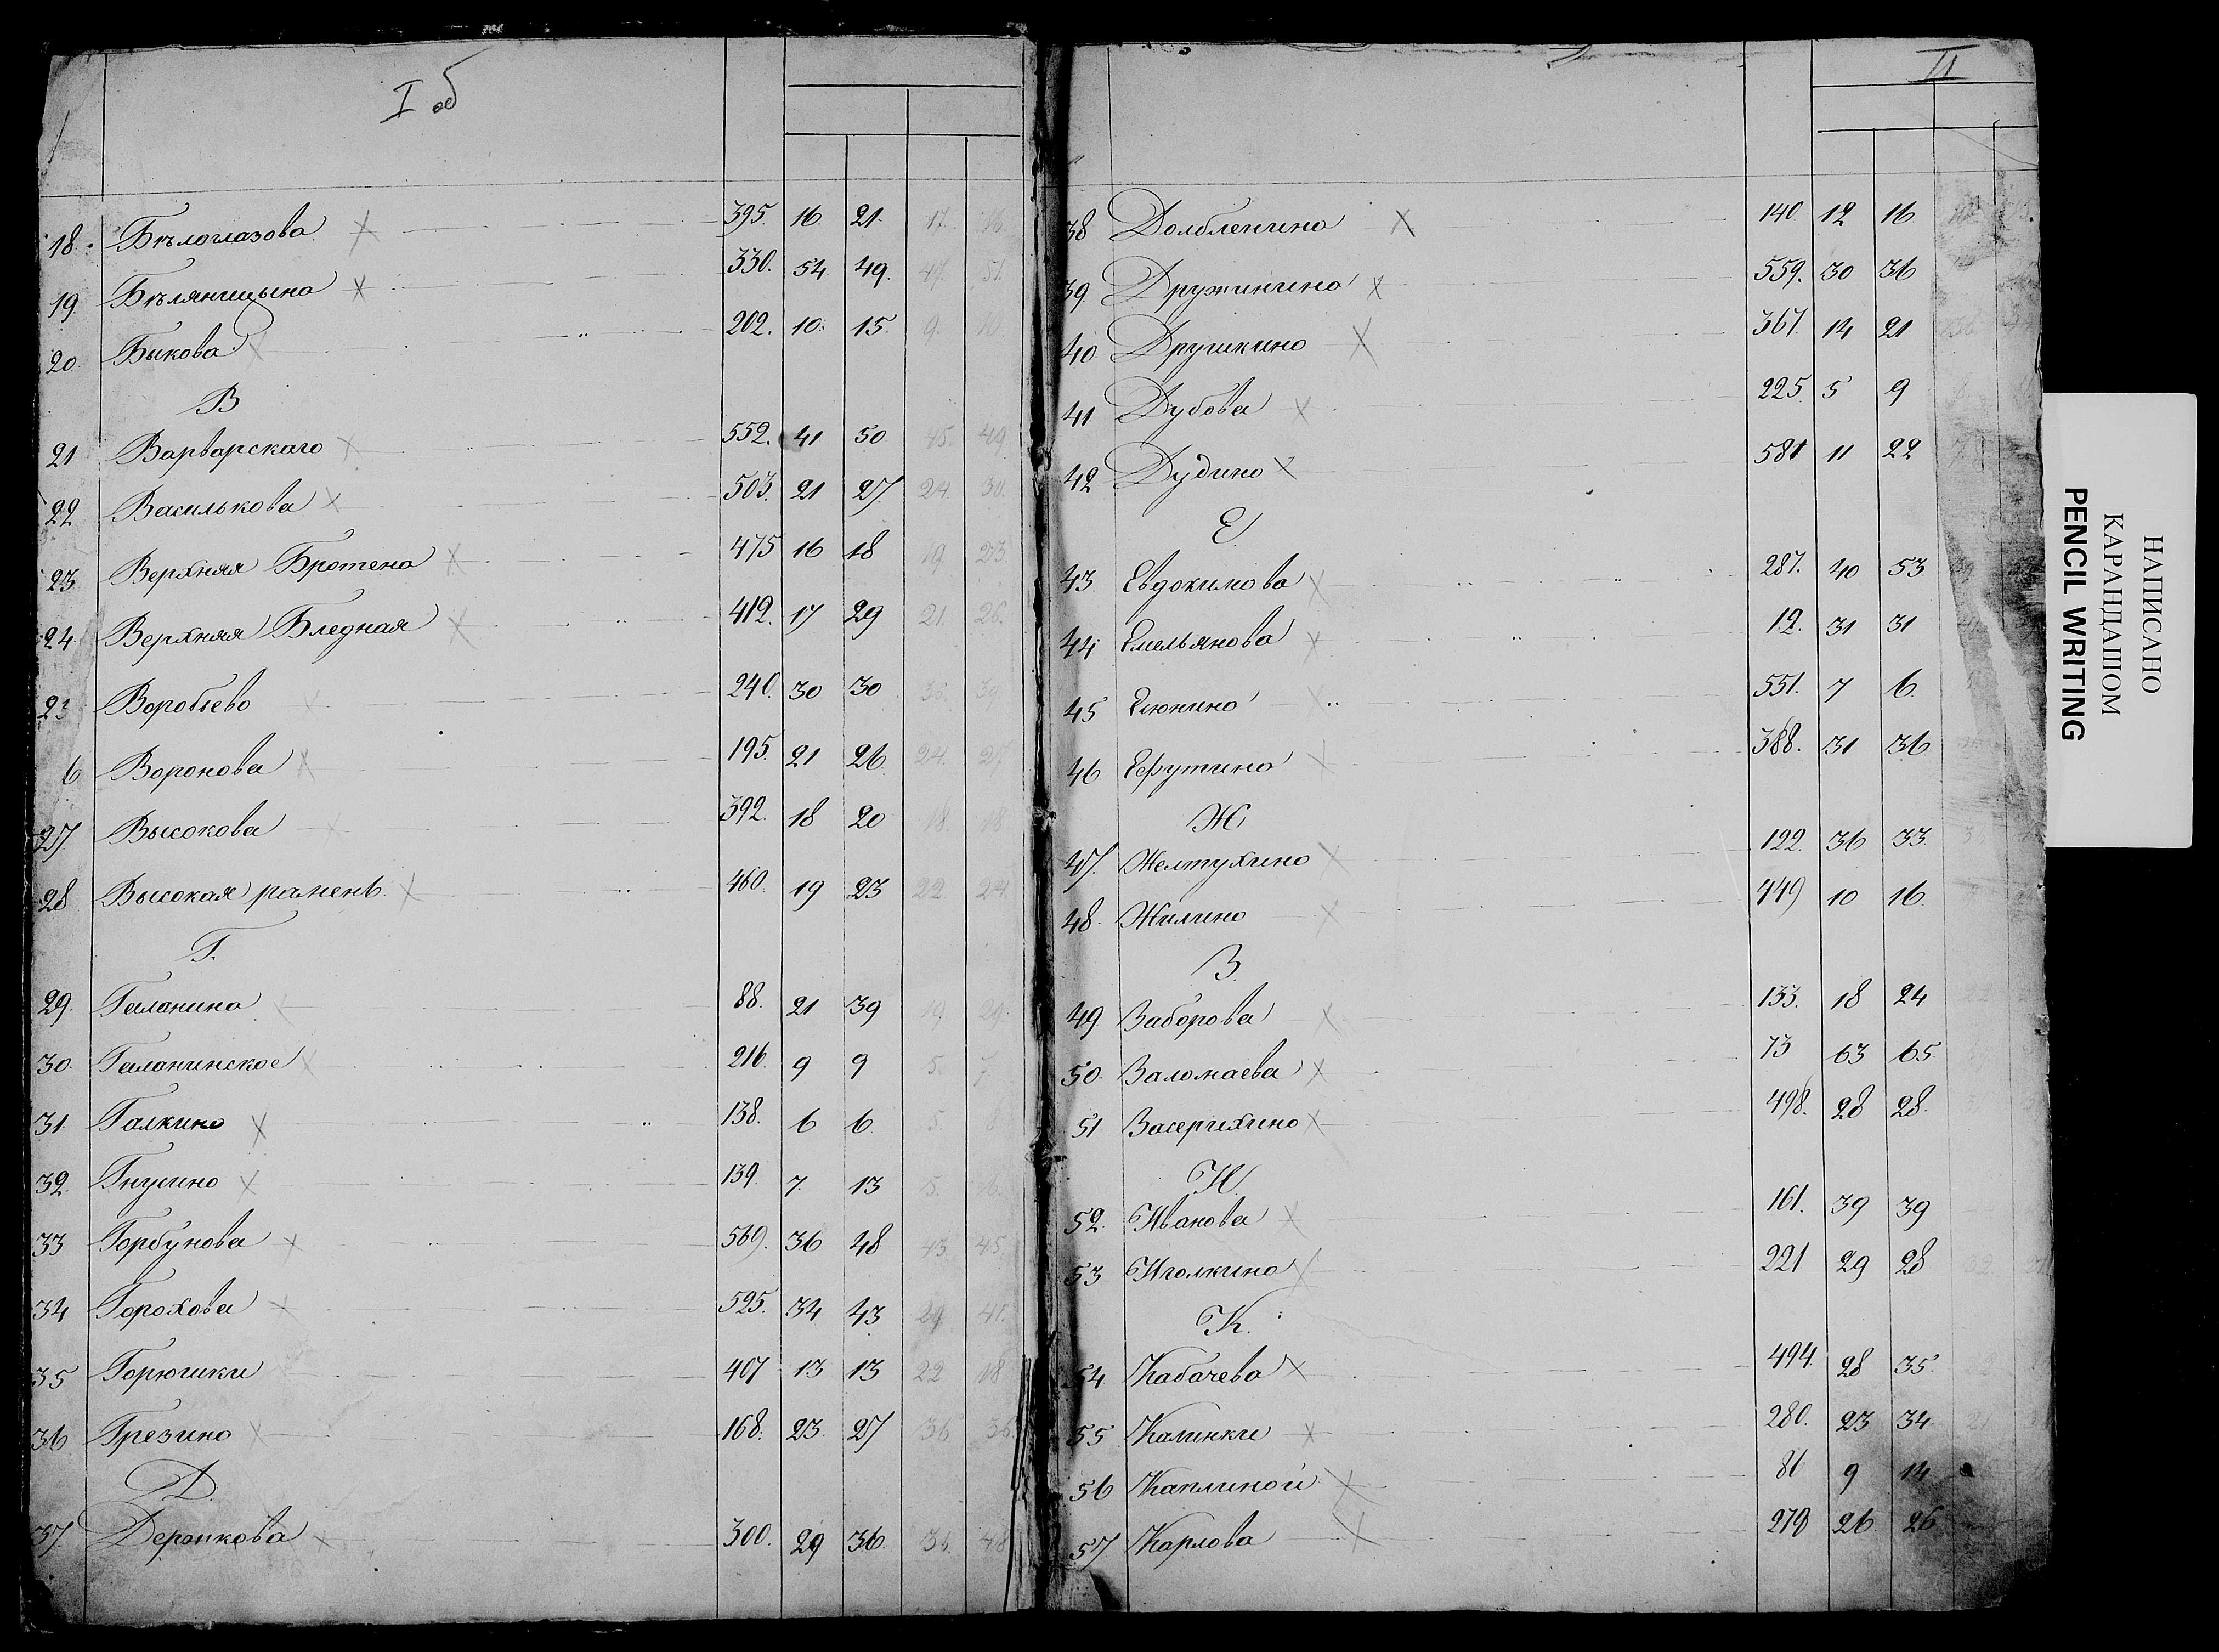 I об
18. Бѣлоглазова 395. 16. 21. 17. 16.
19. Бѣляницына 330. 54 49. 47. 51.
20. Быкова 202. 10. 15. 9. 10.
В
21 Варварскаго 552. 41 50 45. 49
22 Василькова 503. 21 27. 24. 30.
23 Верхняя Бротена 475 16 18 19. 23.
24. Верхняя Бледная 412. 17 29 21. 26.
Воробьево 240. 30 30
6 Воронова 195. 21 26. 24. 27
27 Высокова 392. 18 20 18. 18
28 Высокая рамень 460. 19 23 22 24.
Г.
29. Галанина 88. 21 39 19. 29.
30. Галанинское 216. 9 9 5. 7
31. Галкино 138. 6 6. 5. 8
32. Гнусино 139. 7. 13 5. 6.
33 Горбунова 569. 36 48 43. 45.
34 Горохова 525. 34 43 29 41.
35 Горюшки 407 13 13 22 18
36 Грезино 168. 23. 27 36 36
Д.
37. Деренкова 300. 29 36. 48
II
38 Долбленино 140. 12 16
39. Дружинино 559. 30 36
40. Друшкино 367. 14 21
41 Дубова 225. 5 9
42 Дудино 581 11 22
Е
43. Евдокимова 287. 40 53
44. Емельянова 12. 31 31
45 Елюнино 551. 7 6
46 Ефутино 388. 31 36.
Ж
47. Желтухино 122. 36 33.
48. Жилино 449 10 16
З.
49 Заборова 133. 18 24
50. Заломаева 73 63 65.
51 Засерихино 498. 28 28.
И
52. Иванова 161. 39 39
53 Иголкино 221 29 28
К.
54 Кабачева 494. 28 35.
55 Калинки 280. 23 34.
56 Каплиной 86 9 14
57 Карлова 279 26 26
НАПИСАНО
КАРАНДАШОМ
PENCIL WRITING